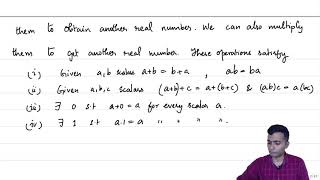 them to obtain another real number. We can also multiply
them to get another real number. These operations satisfy
(i) Given a,b scalars a+b = b+a , ab = ba
(ii) Given a,b,c scalars (a+b)+c = a+(b+c) & (ab)c = a(bc)
(iii) ∃ 0 s.t a+0 = a for every scalar a.
(iv) ∃ 1 s.t a.1 = a " " " ".